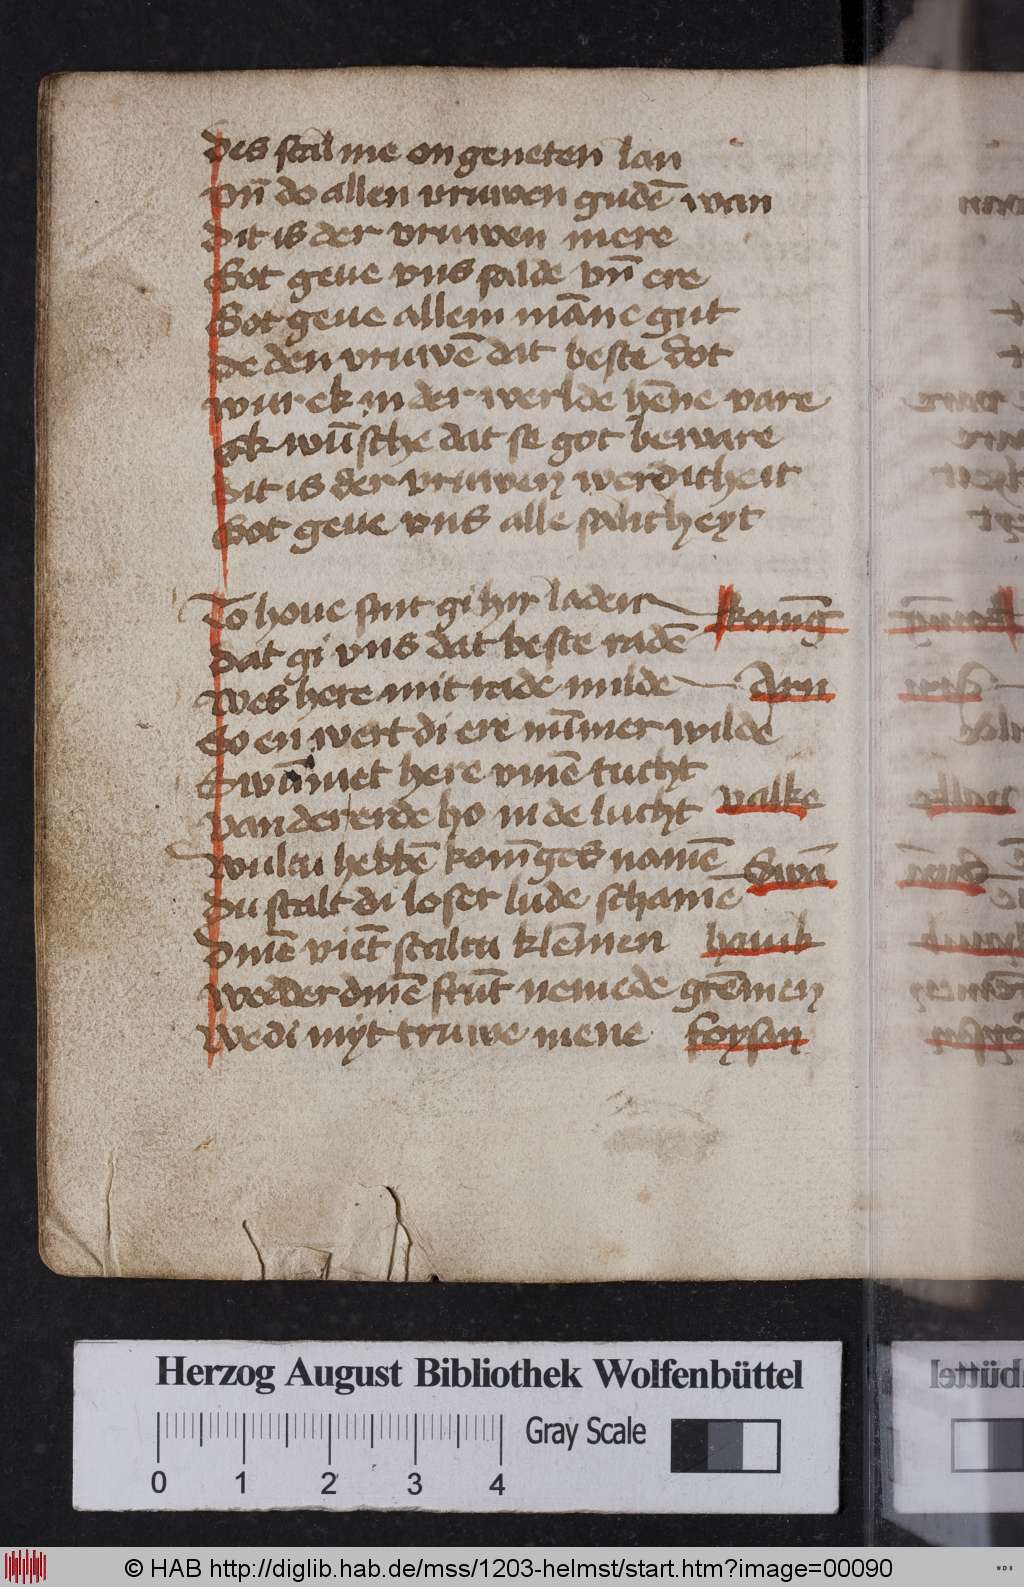 des scal me on geneten lan
vn̄ do allen vruwen gudē wan
dit is der vruwen mere
Got geue vns salde vn̄ ere
Got geue allem māne gut
De den vruwē dat beste dot
wur ek in der werlde hēne vare
Ek wūsche dat se got beware
dit is der vruwen werdicheit
Got geue vns alle salicheyt
To houe sint gi hir laden konīg
dat gi vns dat beste radē
Wes here mit rade milde Arn
So en wert di ere nūmer wilde
Swā met here vmē tucht
van der erde ho in de lucht valke
wultu hebbē konīges namē
Swā
du scalt di loser lude schame
dinē viēt scaltu klēmen hauik
wedder dinē frūt nem ede grēmen
We di myt truwe mene
Herzog August Bibliothek Wolfenbüttel
0 1 2 3 4
Gray Scale
© HAB http://diglib.hab.de/mss/1203-helmst/start.htm?image=00090